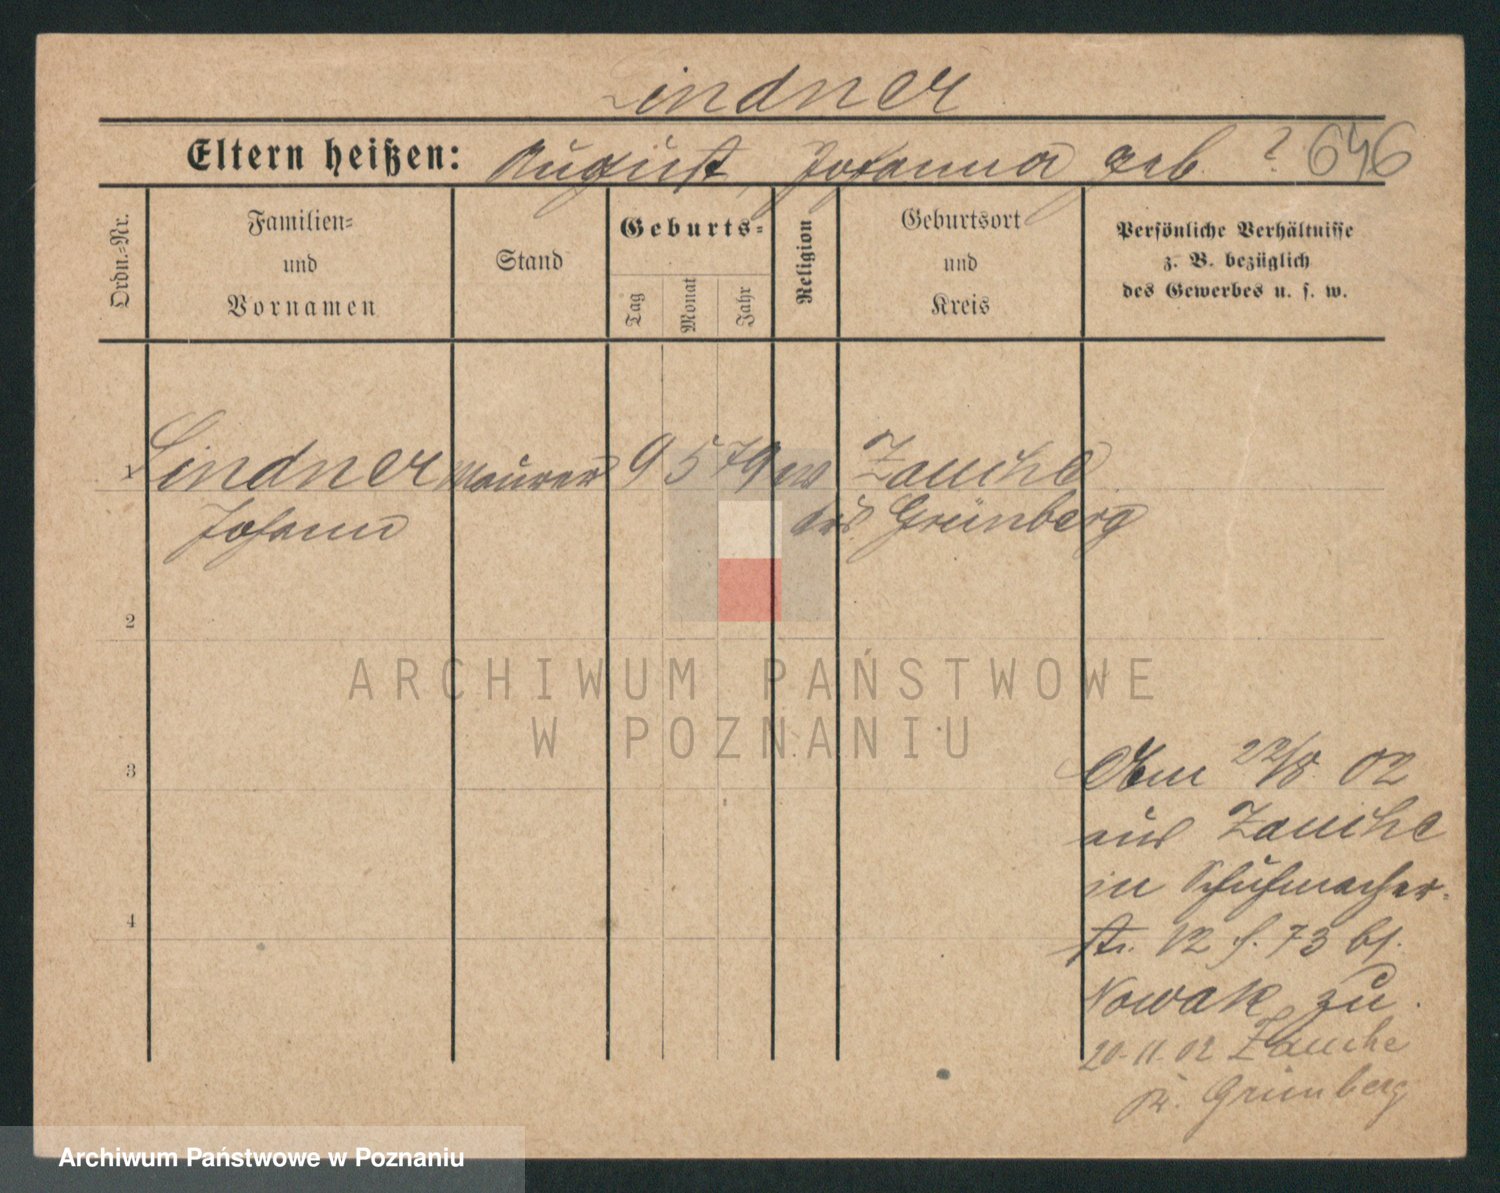 Lindner
Eltern heißen: August, Johanna geb. ? 646
Ordn.-Nr.
Familien-
und
Vornamen
Stand
Geburts-
Tag
Monat
Jahr
Religion
Geburtsort
und
Kreis
Persönliche Verhältnisse
z. B. bezüglich
des Gewerbes u. s. w.
1 Lindner Maurer 9 5 79 ev Zauche
Johann Krs. Grünberg
2
3
4
22/8 02
aus Zauche
in Schuhmacher-
str. 12 f. 73 bf.
Nowak zu.
20.11.02 Zauche
Kr. Grünberg
ARCHIWUM PAŃSTWOWE
W POZNANIU
Archiwum Państwowe w Poznaniu